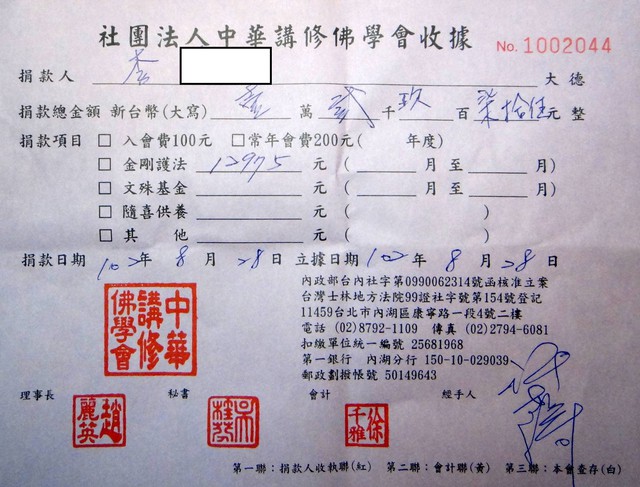 社團法人中華講修佛學會收據 No. 1002044
捐款人 李 大德
捐款總金額 新台幣(大寫) 壹 萬 貳 千 玖 百 柒拾伍元 整
捐款項目 □ 入會費100元 □常年會費200元( 年度)
□ 金剛護法 12975 元 ( 月 至 月)
□ 文殊基金 元 ( 月 至 月)
□ 隨喜供養 元 ( )
□ 其 他 元 ( )
捐款日期 102 年 8 月 28 日 立據日期 102 年 8 月 28 日
內政部台內社字第0990062314號函核准立案
台灣士林地方法院99證社字號第154號登記
11459台北市內湖區康寧路一段4號二樓
電話 (02)8792-1109 傳真 (02)2794-6081
扣繳單位統一編號 25681968
第一銀行 內湖分行 150-10-029039
郵政劃撥帳號 50149643
中華講修佛學會
理事長 秘書 會計 經手人
趙麗英 徐千雅
第一聯：捐款人收執聯(紅) 第二聯：會計聯(黃) 第三聯：本會查存(白)